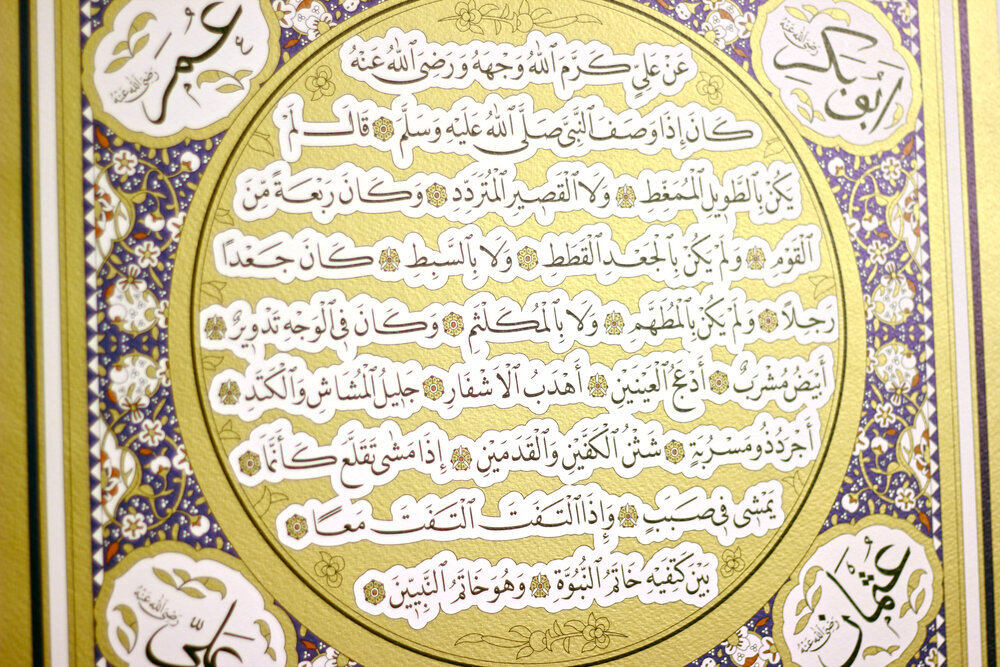 ابى بكر
رضى الله عنه
عمر
رضى الله عنه
عن علي كرم الله وجهه ورضى الله عنه
كان إذا وصف النبي صلى الله عليه وسلم قال لم
يكن بالطويل الممغط ولا القصير المتردد وكان ربعة من
القوم ولم يكن بالجعد القطط ولا بالسبط كان جعدا
رجلا ولم يكن بالمطهم ولا بالمكلثم وكان في الوجه تدوير
أبيض مشرب أدعج العينين أهدب الاشفار جليل المشاش والكتد
أجرد ذو مسربة شثن الكفين والقدمين إذا مشى تقلع كأنما
يمشي في صبب وإذا التفت التفت معا
بين كتفيه خاتم النبوة وهو خاتم النبيين
عثمان
رضى الله عنه
علي
رضى الله عنه